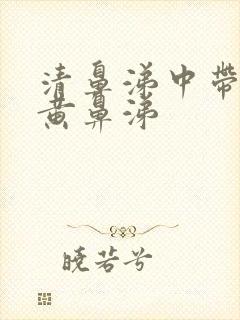 清鼻涕中带
黄鼻涕
晓芸兮